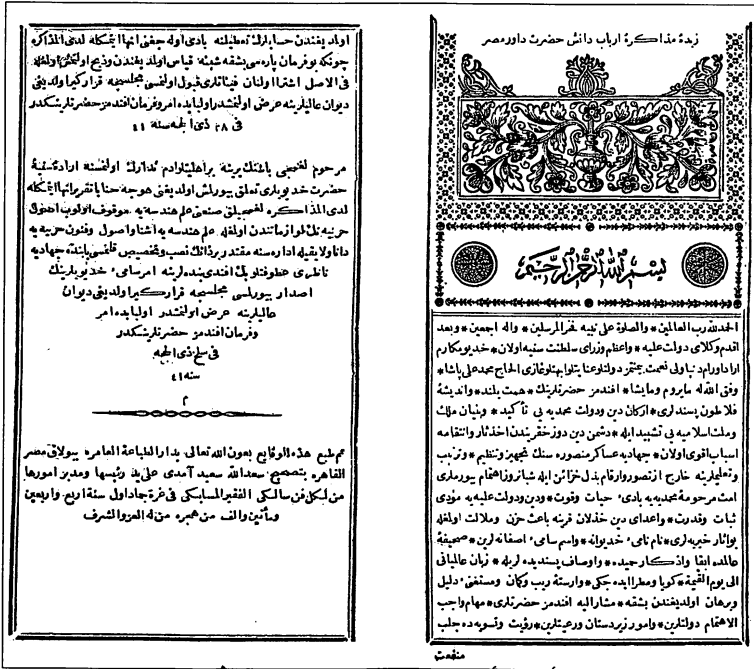 زبدهٔ مذاكرهٔ ارباب دانش حضرت داور مصر
بسم الله الرحمن الرحيم
الحمدلله رب العالمين * والصلوة على نبيه فخر المرسلين * واله اجمعين * وبعد
اقدم وكلاى دولت عليه * واعظم وزراى سلطنت سنيه اولان * خديو مكارم
دولتلو عنايتلو ابهتلو غازى الحاج محمد على پاشا *
وفق الله له مايروم ومايشا * افندمز حضرتلرينك * همت بلند * وانديشهٔ
فلاطون پسندلرى * اركان دين ودولت محمديه يى تأكيد * وبنيان ملك
وملت اسلاميه يى تشييد ايله * دشمن دين دوزخ قريندن اخذ ثار وانتقامه
اسباب اقوى اولان * جهاديه عساكر منصوره سنك تجهيز وتنظيم * وترتيب
وتعليملرينه خارج از تصور وارقام بذل خزائن ايله شبانروز اهتمام بيورملرى
امت مرحومهٔ محمديه يه بادئ حيات وقوت * ودين ودولت عليه يه مؤدى
ثبات وقدرت * واعداى دين خذلان قرينه باعث حزن وملالت اولمغله
بو اثار خيريه لرى * نام نامئ خديوانه * واسم سامئ اصفانه لرين * صحيفهٔ
عالمده ابقا واذكار حميده * واوصاف پسنديده لريله * زبان عالميانى
الى يوم القيمة * كويا ومعطر ايده جكى * وارستهٔ ريب وكمان ومستغنئ دليل
وبرهان اولديغندن بشقه * مشار اليه افندمز حضرتلرى * مهام واجب
الاهتمام دولتلرين * وامور زيردستان ورعيتلرين * رؤيت وتسويه ده جلب
منفعت
اولديغندن تعطيلنه بادى اوله جغنى انها ايتمكله لدى المذاكره
چونكه بو فرمان پاره سى بشقه شيئه قياس اولديغندن
فى الاصل اشترا اولنان فيئاتلرى قبول اولنمسى مجلسجه قراركير اولديغى
ديوان عاليلرينه عرض اولنمشدر اولبابده امر وفرمان افندمز حضرتلرينكدر
فى ٢٨ ذى الحجه سنة ٤١
مرحوم يرينه بر اهليتلو ادم تدارك اولنمسنه ارادهٔ سنيهٔ
حضرت خديويلرى تعلق بيورلمش اولديغنى تقريرانها ايتمكله
لدى المذاكره صنعتى علم هندسه يه موقوف اولوب اصول
حربيه نك لوازماتندن اولمغله علم هندسه يه اشنا واصول وفنون حربيه يه
دانا ولايقيله اداره سنه مقتدر بر ذاتك نصب وتخصيص قلنمسى بابنده جهاديه
ناظرى عطوفتلو بك افندى بنده لرينه امر سامئ خديويلرينك
اصدار بيورلمسى مجلسجه قراركير اولديغى ديوان
عاليلرينه عرض اولنمشدر اولبابده امر
وفرمان افندمز حضرتلرينكدر
فى سلخ ذى الحجه
سنه ٤١
م
تم طبع هذه الوقايع بعون الله تعالى بدار الطباعة العامره ببولاق مصر
القاهره بتصحيح سعدالله سعيد آمدى على يد رئيسها ومدبر امورها
من لكل فن سالكى الفقير المسابكى فى غرة جماد اول سنة اربع واربعين
ومأتين والف من هجرة من له العز والشرف